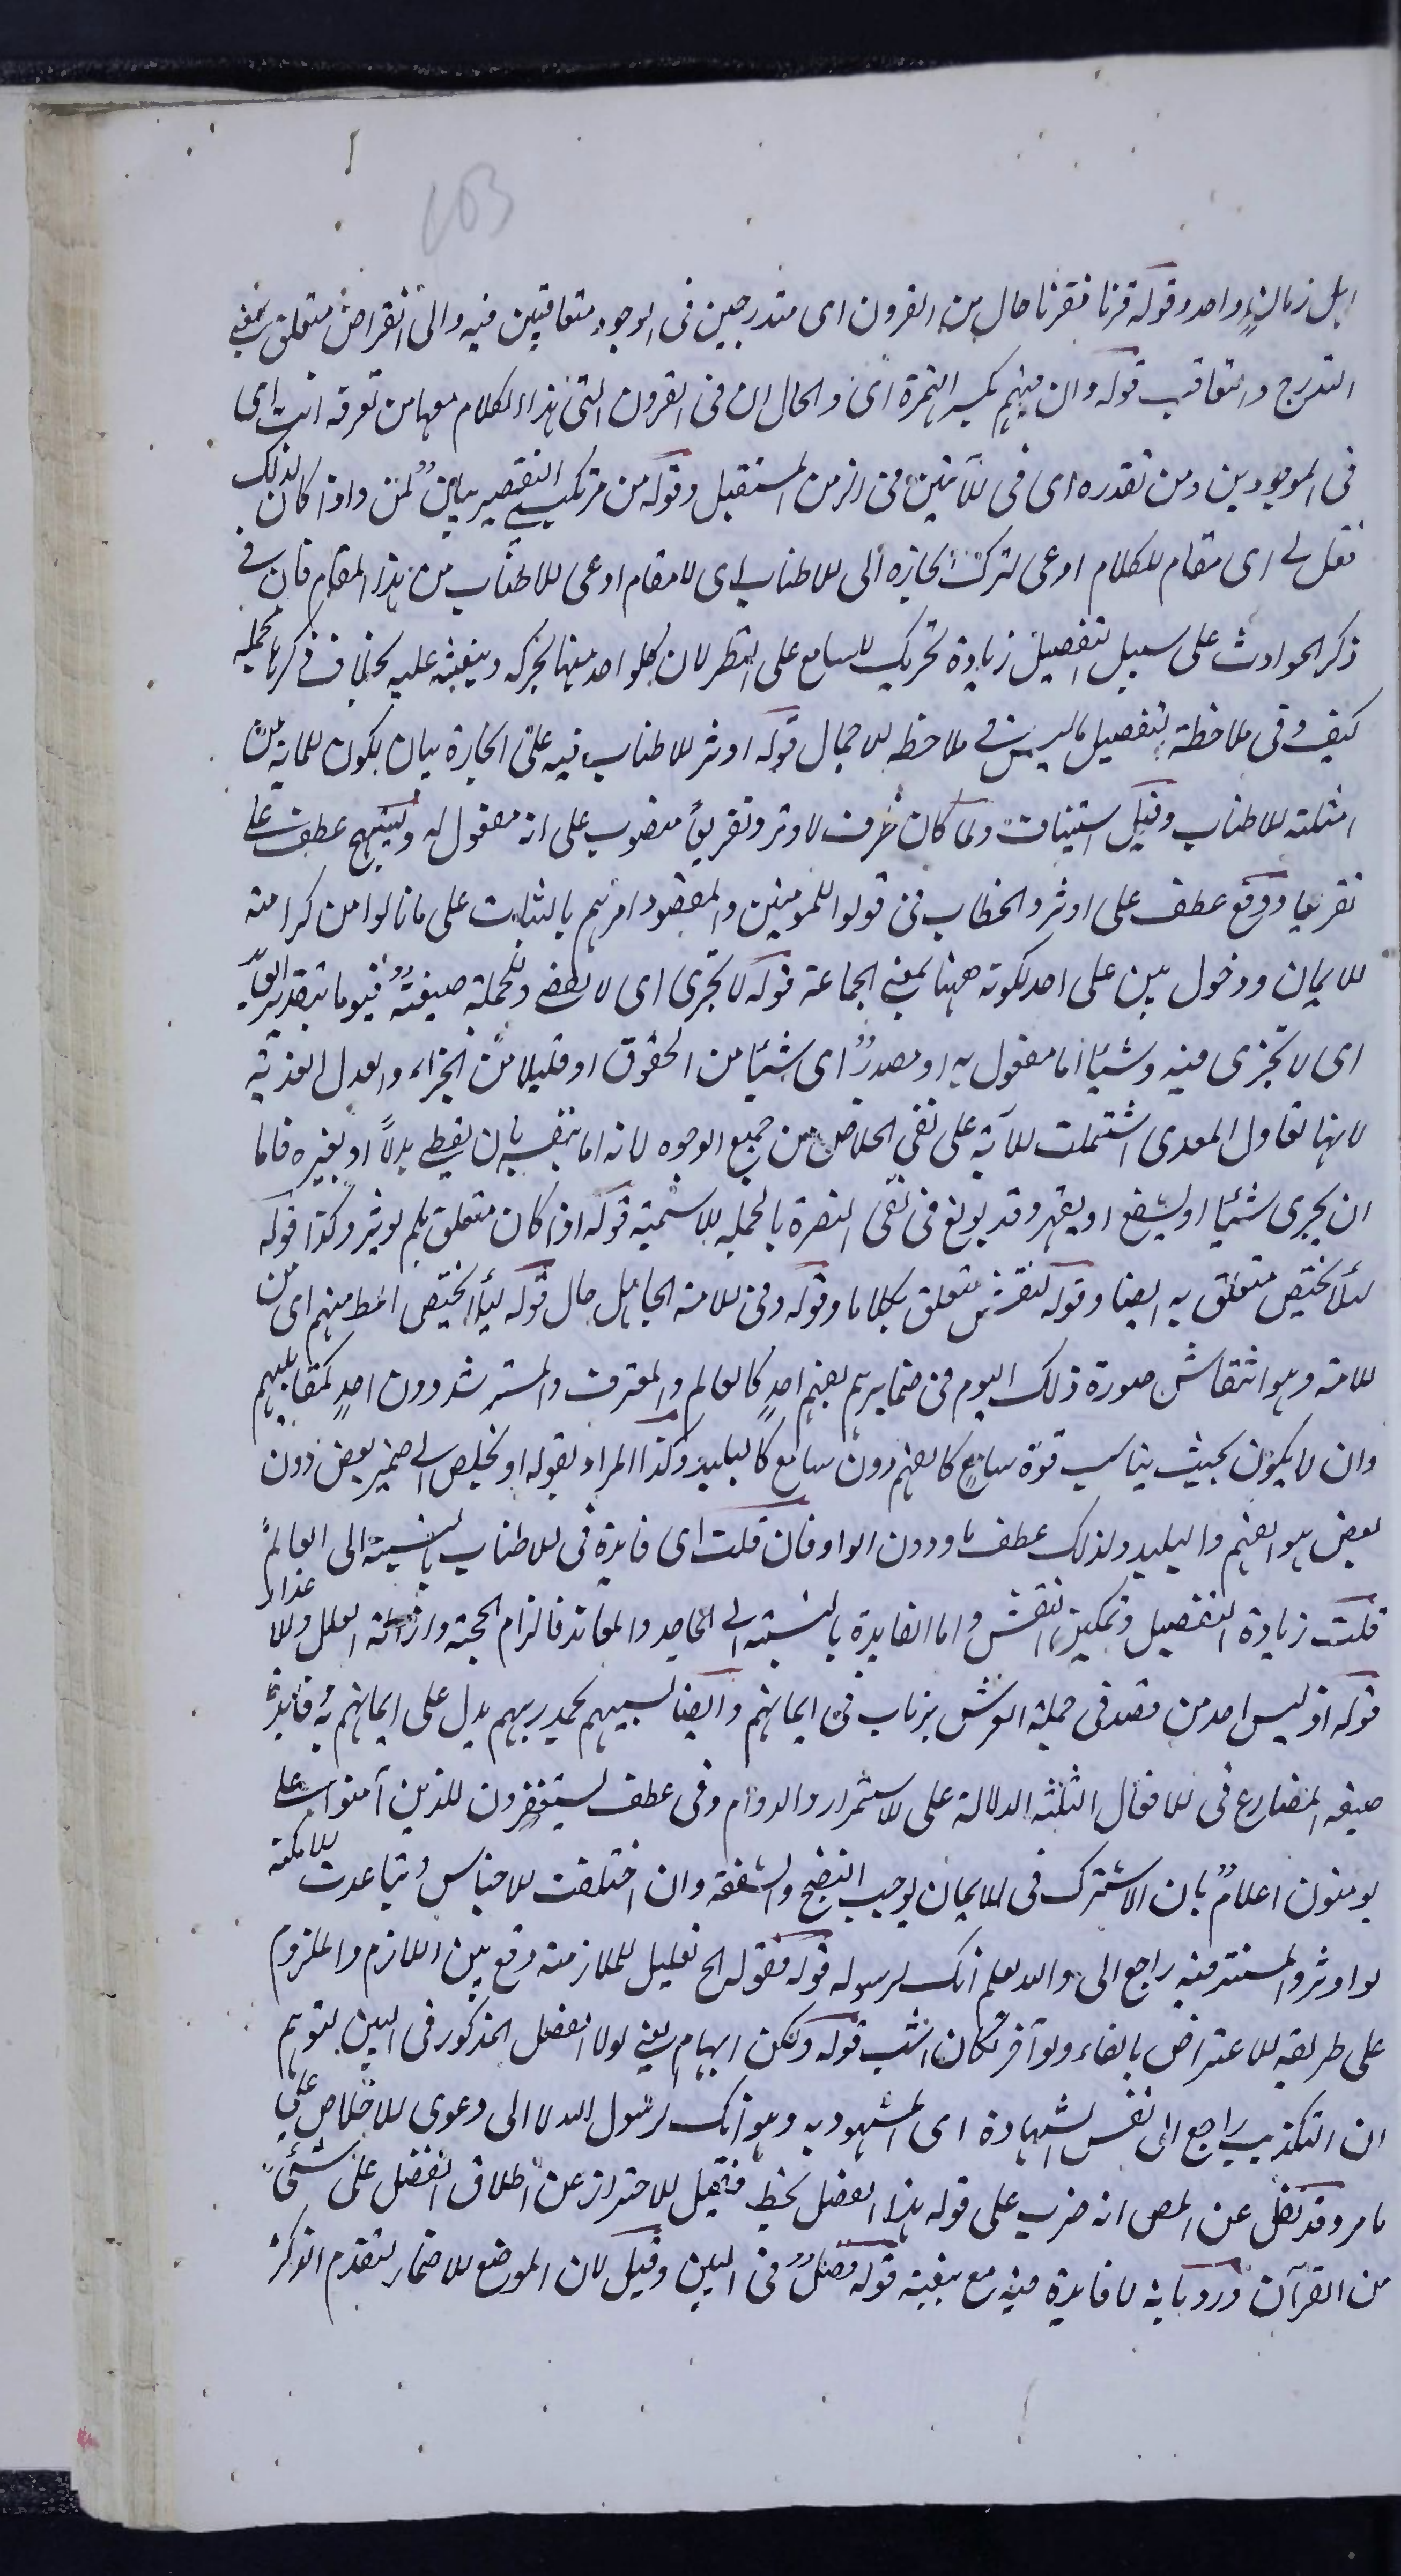 103
اهل زمان واحد وقوله قرنا فقرنا حال من القرون اى متدرجين فى الوجود متعاقبين فيه والى انقراض متعلق بمعنى
التدرج والتعاقب قوله وان منهم بكسر الهمزة اى والحال ان فى القرون التى هذا الكلام معها من تعرفه انت اى
فى الموجودين ومن تقدره اى فى الآتين فى الزمن المستقبل وقوله من مرتكبى التقصير بيان لمن واذا كان كذلك
فقل لى اى مقام للكلام ادعى لترك ايجازه الى الاطناب اى لا مقام ادعى للاطناب من هذا المقام فان فى
ذكر الحوادث على سبيل التفصيل زيادة تحريك للسامع على النظر لان كلواحد منها يحركه وينبهه عليه بخلاف ذكرها مجملة
كيف وفى ملاحظة التفصيل ما ليس فى ملاحظة الاجمال قوله اوثر الاطناب فيه على ايجازه بيان لكون الآية من
امثلة الاطناب وقيل استيناف ولما كان ظرف لاوثر وتقريعا منصوب على انه مفعول له وتنبيها عطف على
تقريعا ووقع عطف على اوثر والخطاب فى قولوا للمومنين والمقصود امرهم بالثبات على ما نالوا من كرامة
الايمان ودخول بين على احد لكونه ههنا بمعنى الجماعة قوله لا تجزى اى لا تقضى والجملة صفة يوما بتقدير العائد
اى لا تجزى فيه وشيئا اما مفعول به او مصدر اى شيئا من الحقوق او قليلا من الجزاء والعدل الفدية
لانها تعادل المفدى اشتملت الآية على نفى الخلاص من جميع الوجوه لانه اما بنفسه بان يعطى بدلا او بغيره فاما
ان يجزى شيئا او يشفع او يقهر وقد بولغ فى نفى النصرة بالجملة الاسمية قوله اذا كان متعلق بلم يوثر وكذا قوله
لئلا يختص متعلق به ايضا وقوله لتقرش متعلق بكلاما وقوله وفى الامة الجاهل حال قوله لئلا يختص المط منهم اى من
الامة وهو انتقاش صورة ذلك اليوم فى ضمايرهم بفهم احد كالعالم والمعترف والمسترشد دون احد كمقابليهم
وان لا يكون بحيث يناسب قوة سامع كالفهم دون سامع كالبليد وكذا المراد بقوله او يخلص الى ضمير بعض دون
بعض هو الفهم والبليد ولذلك عطف باو دون الواو فان قلت اى فايدة فى الاطناب بالنسبة الى العالم
قلت زيادة التفصيل وتمكين النقش واما الفايدة بالنسبة الى الجاحد والمعاند فالزام الحجة وازالة العلل والاعذار
قوله اذ ليس احد من مصدقى حملة العرش يرتاب فى ايمانهم وايضا تسبيحهم بحمد ربهم يدل على ايمانهم به وفايدة
صيغه المضارع فى الافعال الثلثة الدلالة على الاستمرار والدوام وفى عطف يستغفرون للذين آمنوا على
يومنون اعلام بان الاشتراك فى الايمان يوجب النصح والشفقة وان اختلفت الاجناس وتباعدت الامكنة
لو اوثر والمستتر فيه راجع الى والله يعلم انك لرسوله قوله فقوله الخ تعليل للملازمة وقع بين اللازم والملزوم
على طريقة الاعتراض بالفاء ولو اخر لكان انسب قوله ولكن ايهام يعنى لولا الفضل المذكور فى البين لتوهم
ان التكذيب راجع الى نفس الشهادة اى المشهود به وهو انك لرسول الله لا الى دعوى الاخلاص على
ما مر وقد نقل عن المص انه ضرب على قوله هذا الفضل بخط فقيل للاحتراز عن اطلاق الفضل على شئ
من القرآن ورد بانه لا فايدة فيه مع بقية قوله فضل فى البين وقيل لان الموضع للاضمار لتقدم الذكر